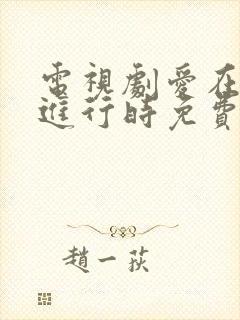 電視劇愛在
進行時免費
趙一荻